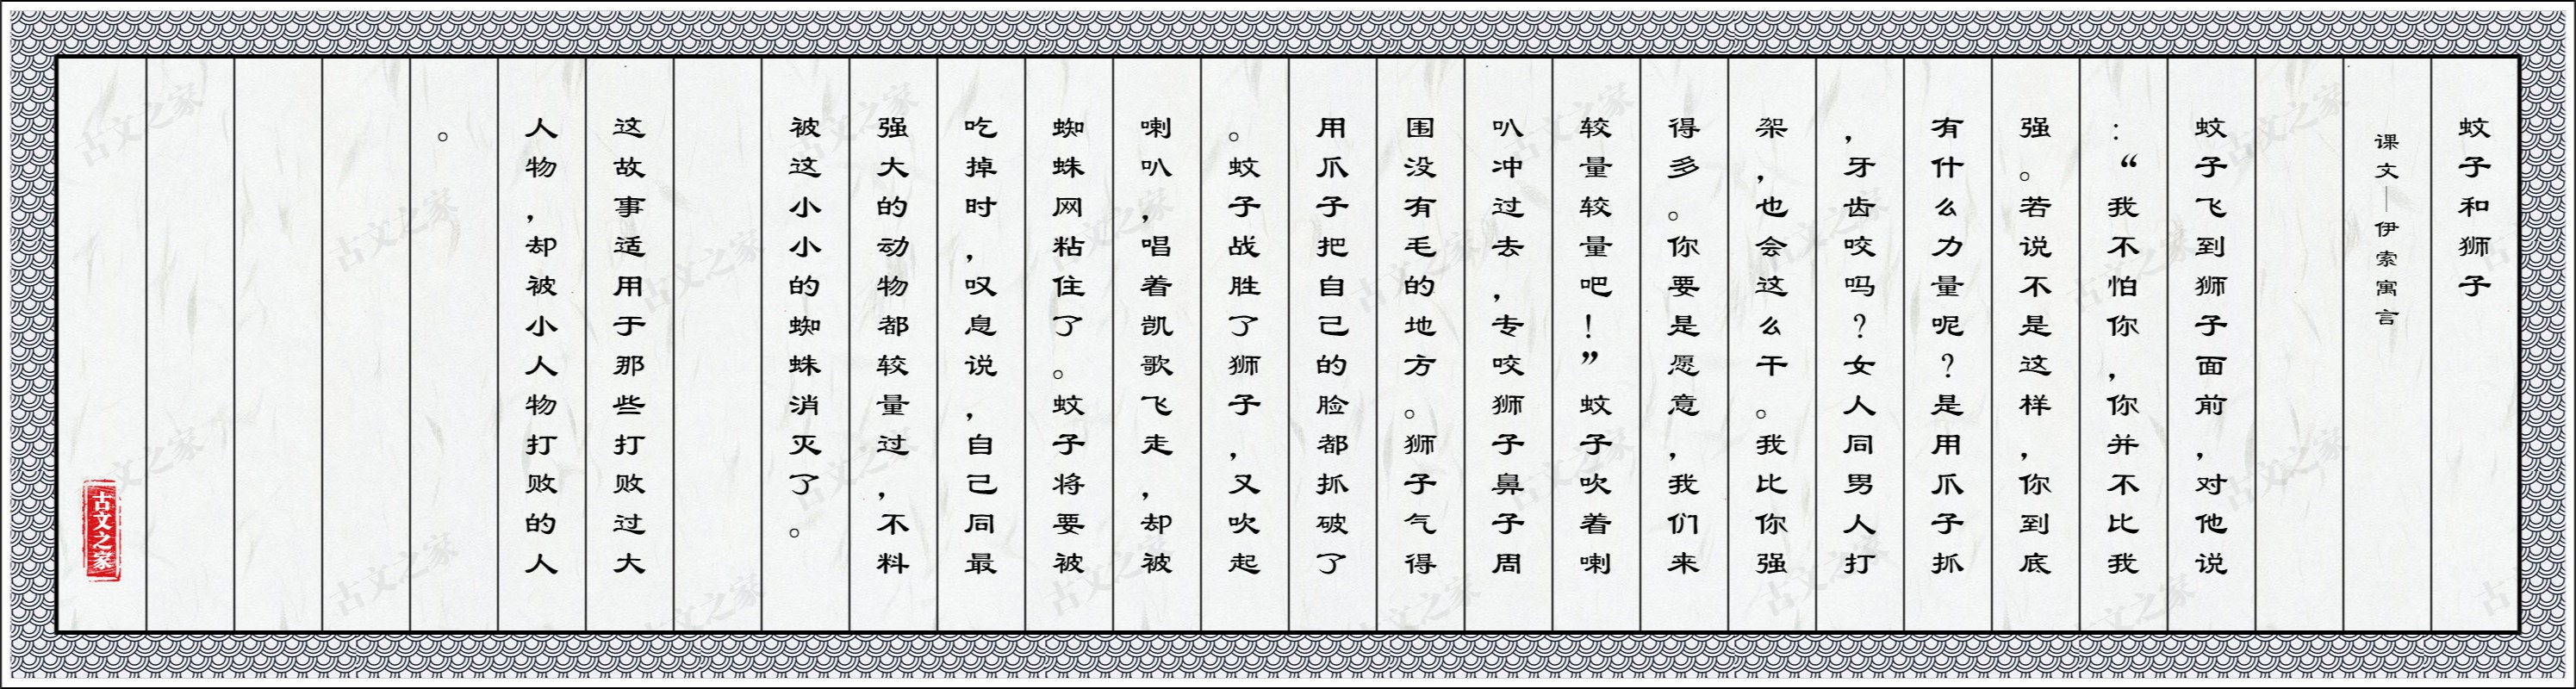 蚊子和狮子
课文｜伊索寓言
蚊子飞到狮子面前，对他说
：“我不怕你，你并不比我
强。若说不是这样，你到底
有什么力量呢？是用爪子抓
，牙齿咬吗？女人同男人打
架，也会这么干。我比你强
得多。你要是愿意，我们来
较量较量吧！”蚊子吹着喇
叭冲过去，专咬狮子鼻子周
围没有毛的地方。狮子气得
用爪子把自己的脸都抓破了
。蚊子战胜了狮子，又吹起
喇叭，唱着凯歌飞走，却被
蜘蛛网粘住了。蚊子将要被
吃掉时，叹息说，自己同最
强大的动物都较量过，不料
被这小小的蜘蛛消灭了。
这故事适用于那些打败过大
人物，却被小人物打败的人
。
古文之家